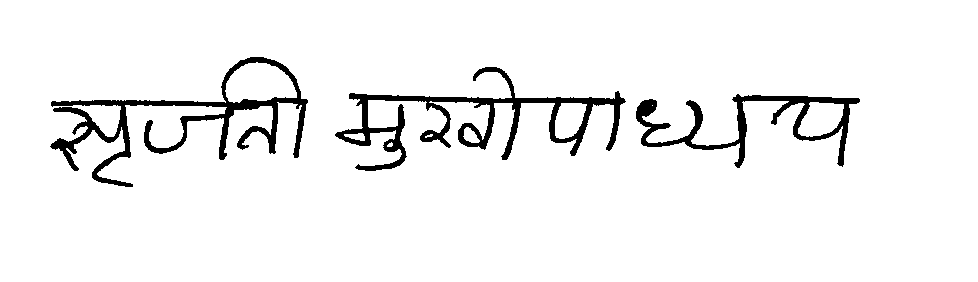 सृजती मुखोपाध्याय